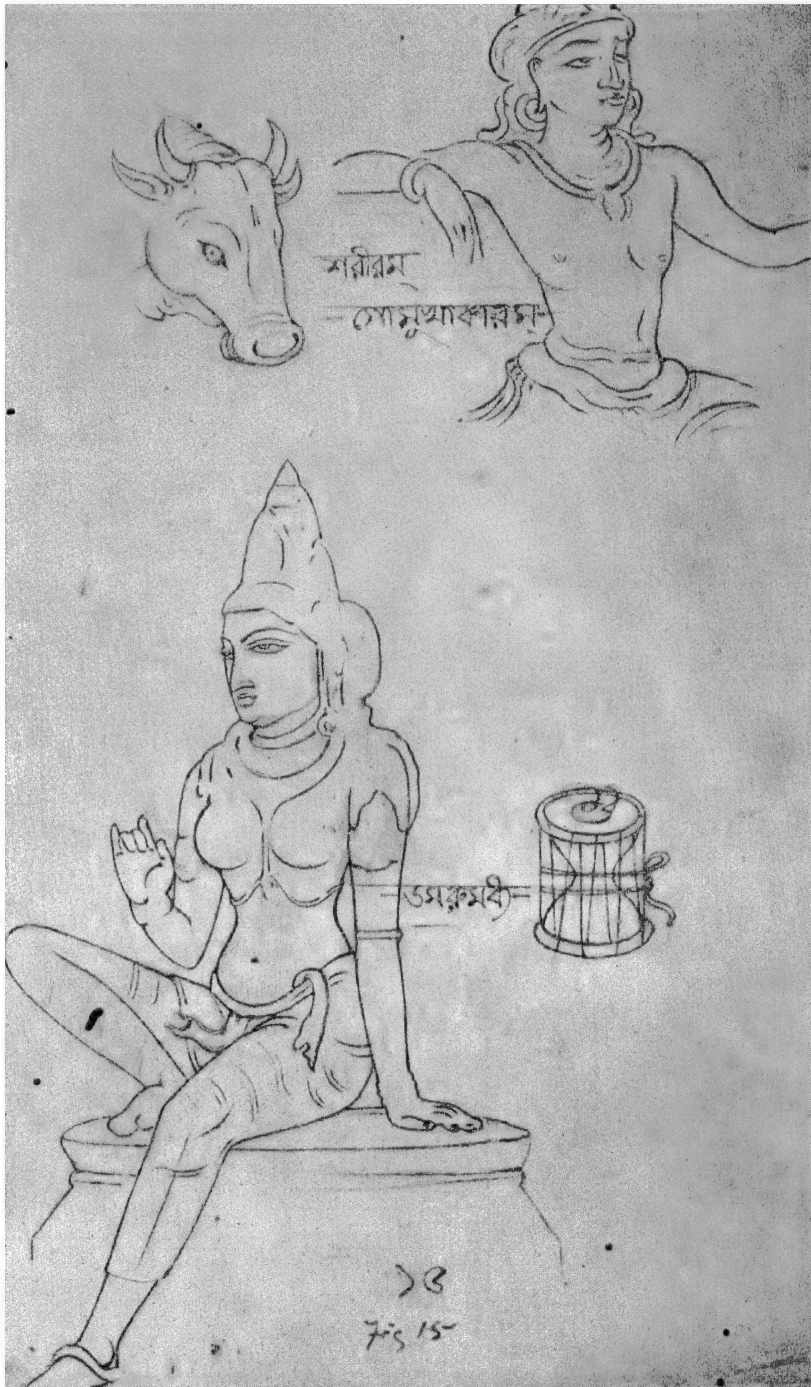 শরীরম্
গোমুখাকারম্
ডমরুমধ্য
১৫
Fig 15